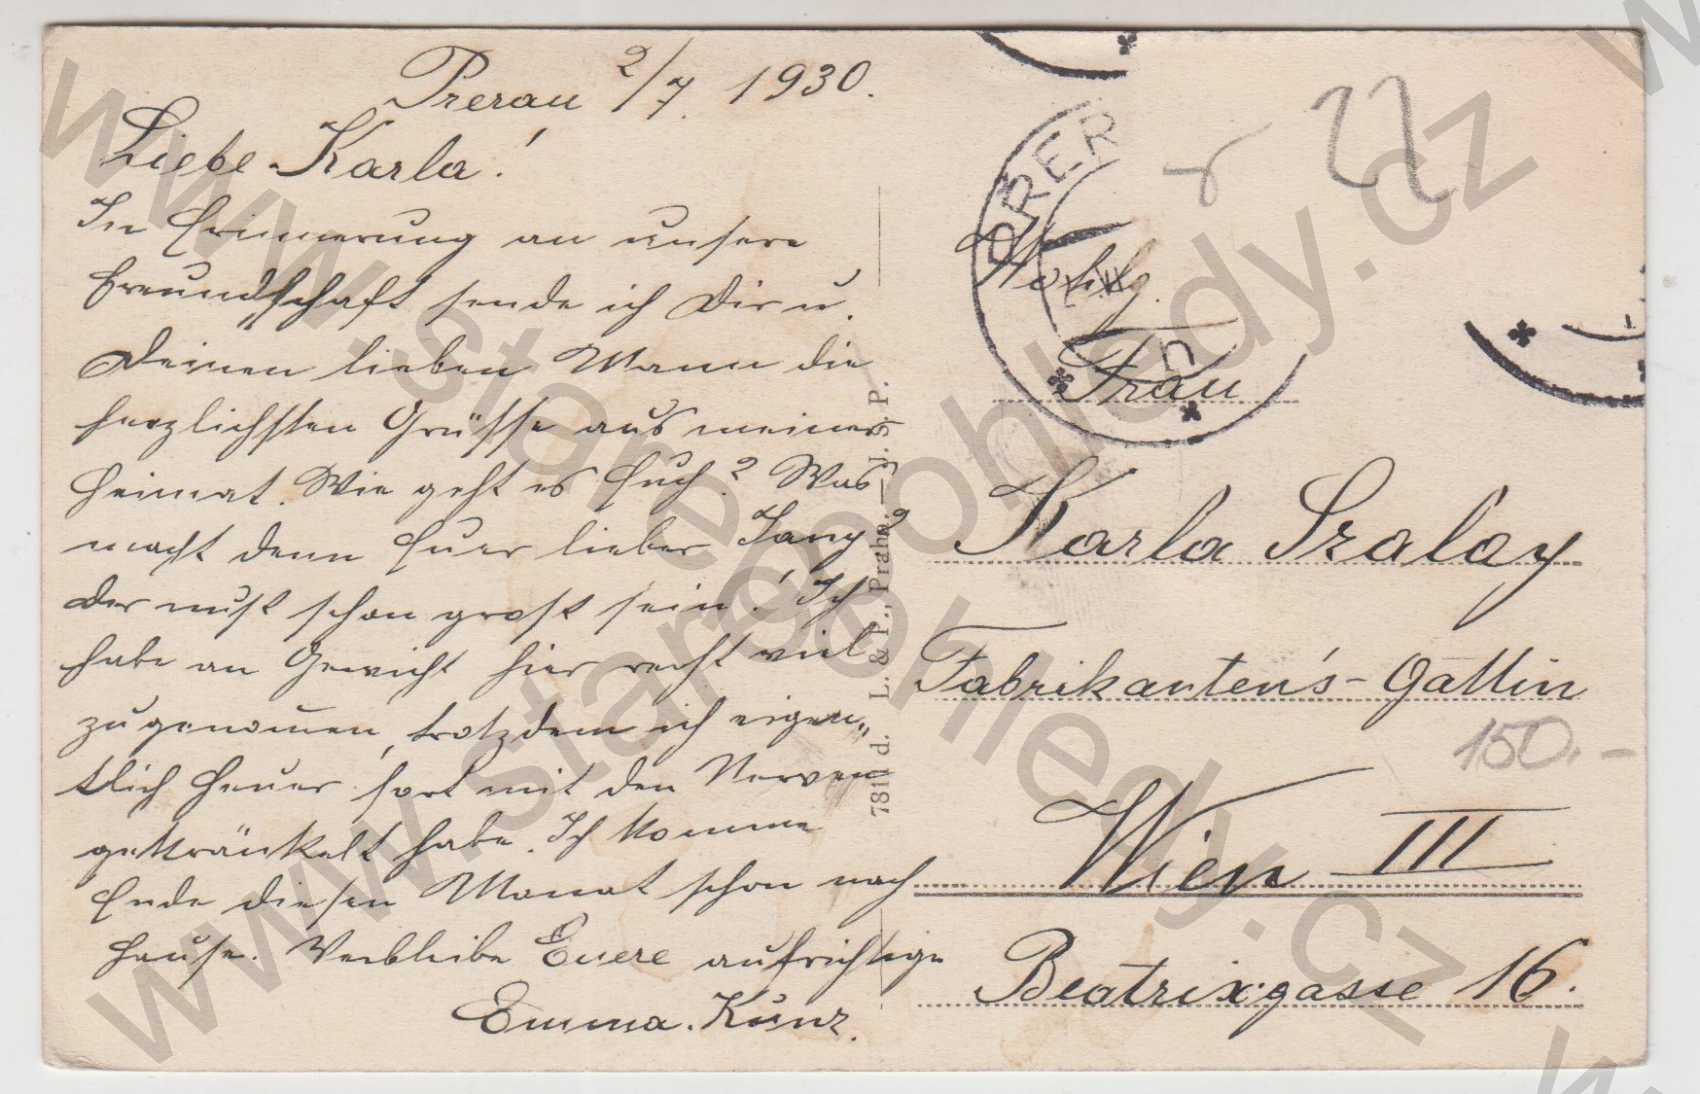 Prerau 2/7. 1930.
Liebe Karla!
In Erinnerung an unsere
Freundschaft sende ich Dir u.
Deinen lieben Mann die
herzlichsten Grüsse aus meiner
Heimat. Wie geht es Euch? Was
macht denn Euer lieber
Der muß schon groß sein! Ich
habe an Gewicht hier recht viel
zugenommen, trotzdem ich eigen„
tlich heuer fort mit den Nerven
gekränkelt habe. Ich komme
Ende diesen Monat schon nach
Hause. Verbleibe Euere aufrichtige
Emma Kunz.
781 d. L. & P., Praha. — J. S. P.
PRER
Frau
Karla Szalay
Fabrikanten's-Gattin
150.-
Wien III
Beatrixgasse 16.
www.stare-pohledy.cz
www.stare-pohledy.cz